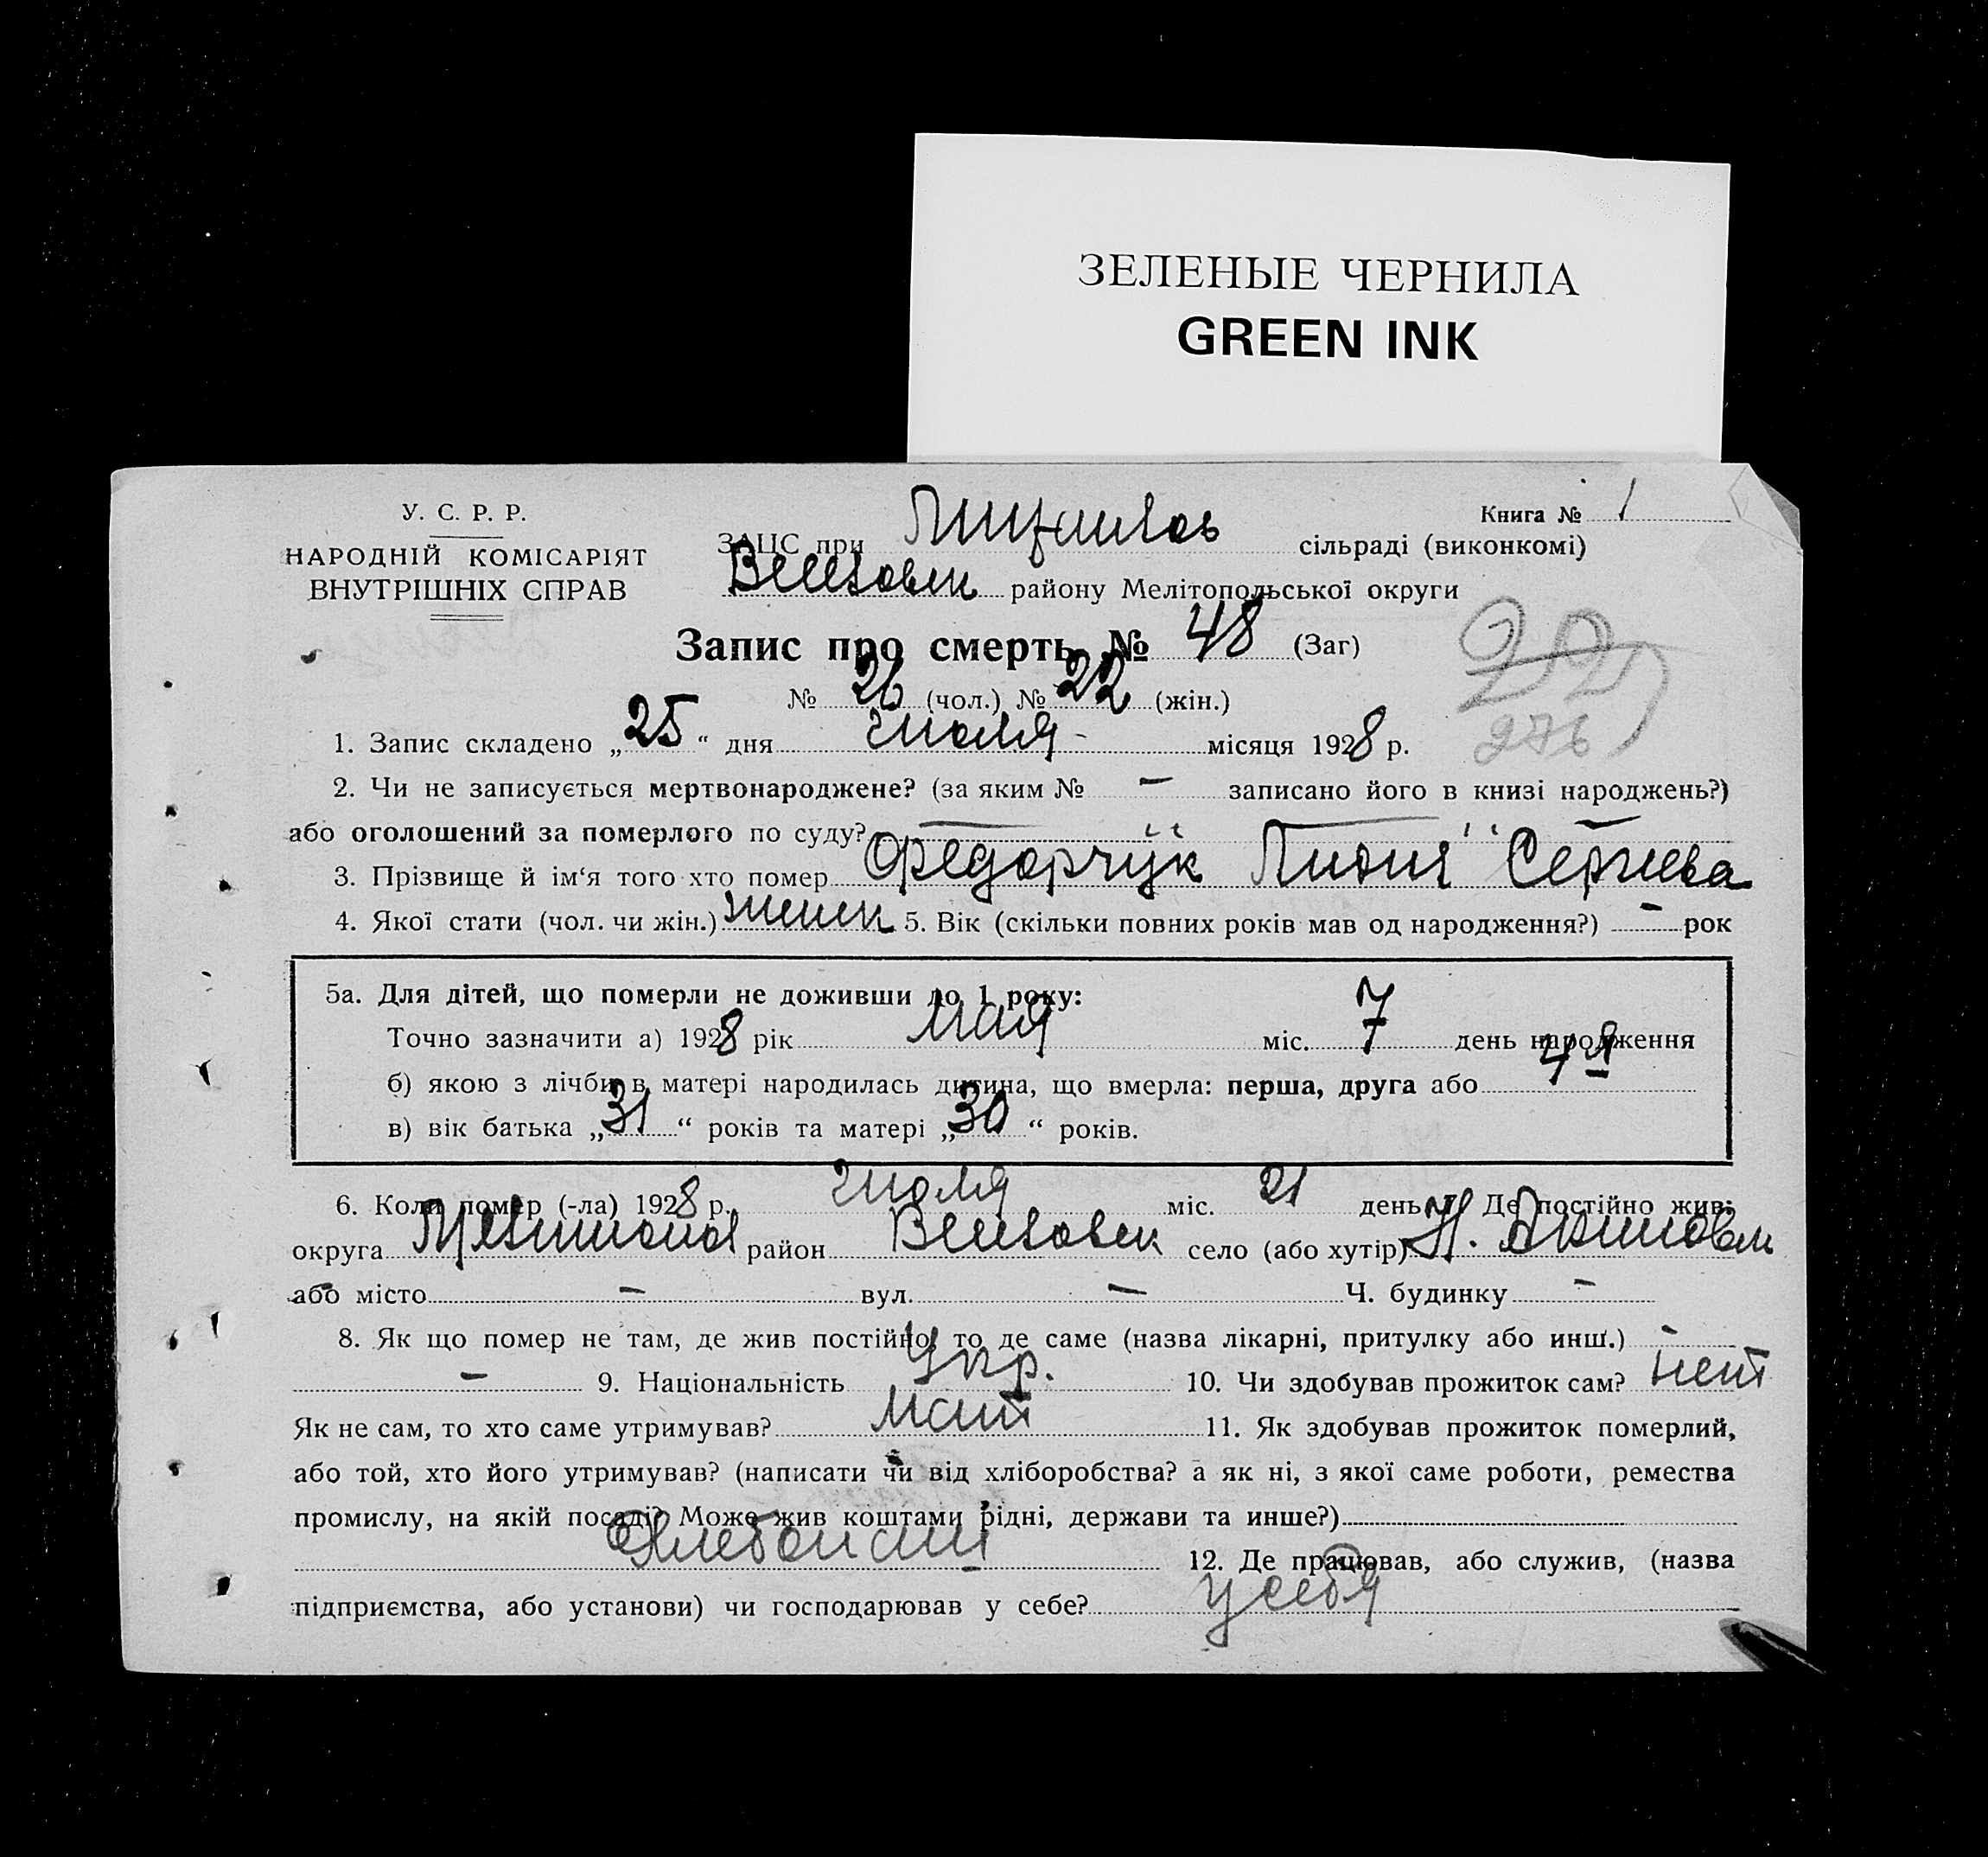 ЗЕЛЕНЫЕ ЧЕРНИЛА
GREEN INK
У. С. Р. Р.
НАРОДНІЙ КОМІСАРІЯТ
ВНУТРІШНІХ СПРАВ
Книга № 1
ЗАЦС при сільраді (виконкомі)
району Мелітопольської округи
Запис про смерть № 48 (Заг)
№ 26 (чол.) № 22 (жін.)
276
1. Запис складено „25“ дня Июля місяця 1928 р.
2. Чи не записується мертвонароджене? (за яким № — записано його в книзі народжень?)
або оголошений за померлого по суду?
3. Прізвище й ім‘я того хто помер Федорчук Лидия Сергиева
4. Якої стати (чол. чи жін.) женск 5. Вік (скільки повних років мав од народження?) — рок
5а. Для дітей, що померли не доживши до 1 року:
Точно зазначити а) 1928 рік мая міс. 7 день народження
б) якою з лічби в матері народилась дитина, що вмерла: перша, друга або 4я
в) вік батька „31“ років та матері „30“ років.
6. Коли помер (-ла) 1928 р. Июля міс. 21 день 7. Де постійно жив:
округа район село (або хутір) Н.
або місто — вул. — Ч. будинку —
8. Як що помер не там, де жив постійно, то де саме (назва лікарні, притулку або инш.) —
— 9. Національність Укр. 10. Чи здобував прожиток сам? нет
Як не сам, то хто саме утримував? мат 11. Як здобував прожиток померлий,
або той, хто його утримував? (написати чи від хліборобства? а як ні, з якої саме роботи, ремества
промислу, на якій посаді? Може жив коштами рідні, держави та инше?)
12. Де працював, або служив, (назва
підприємства, або установи) чи господарював у себе? у себя